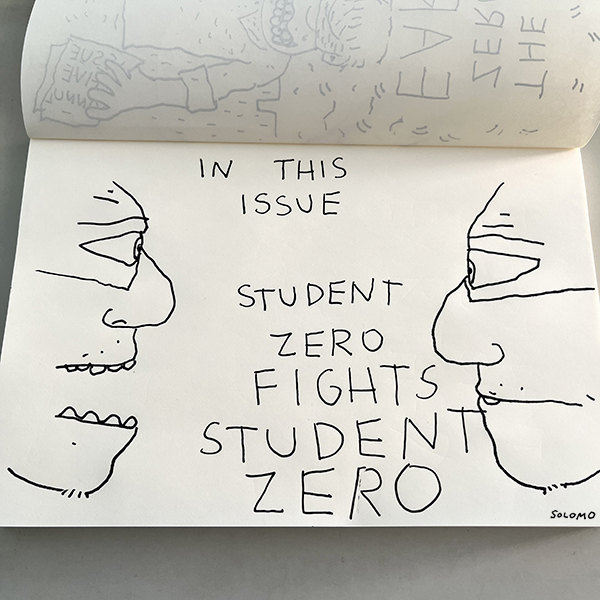 IN THIS
ISSUE
STUDENT
ZERO
FIGHTS
STUDENT
ZERO
SOLOMO